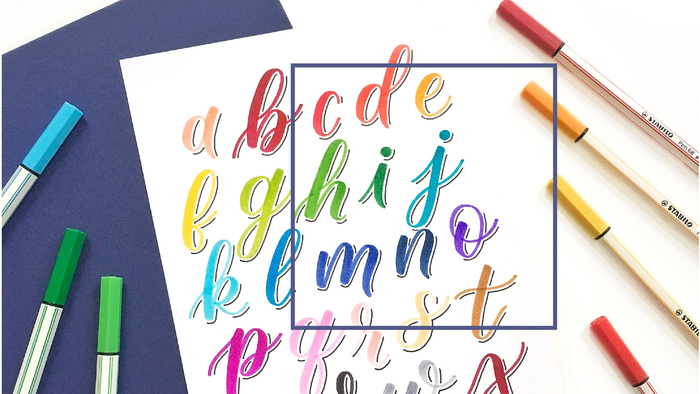 a b c d e
f g h i j
k l m n o
p q r s t
v w x
STABILO Pen 68
STABILO
STABILO